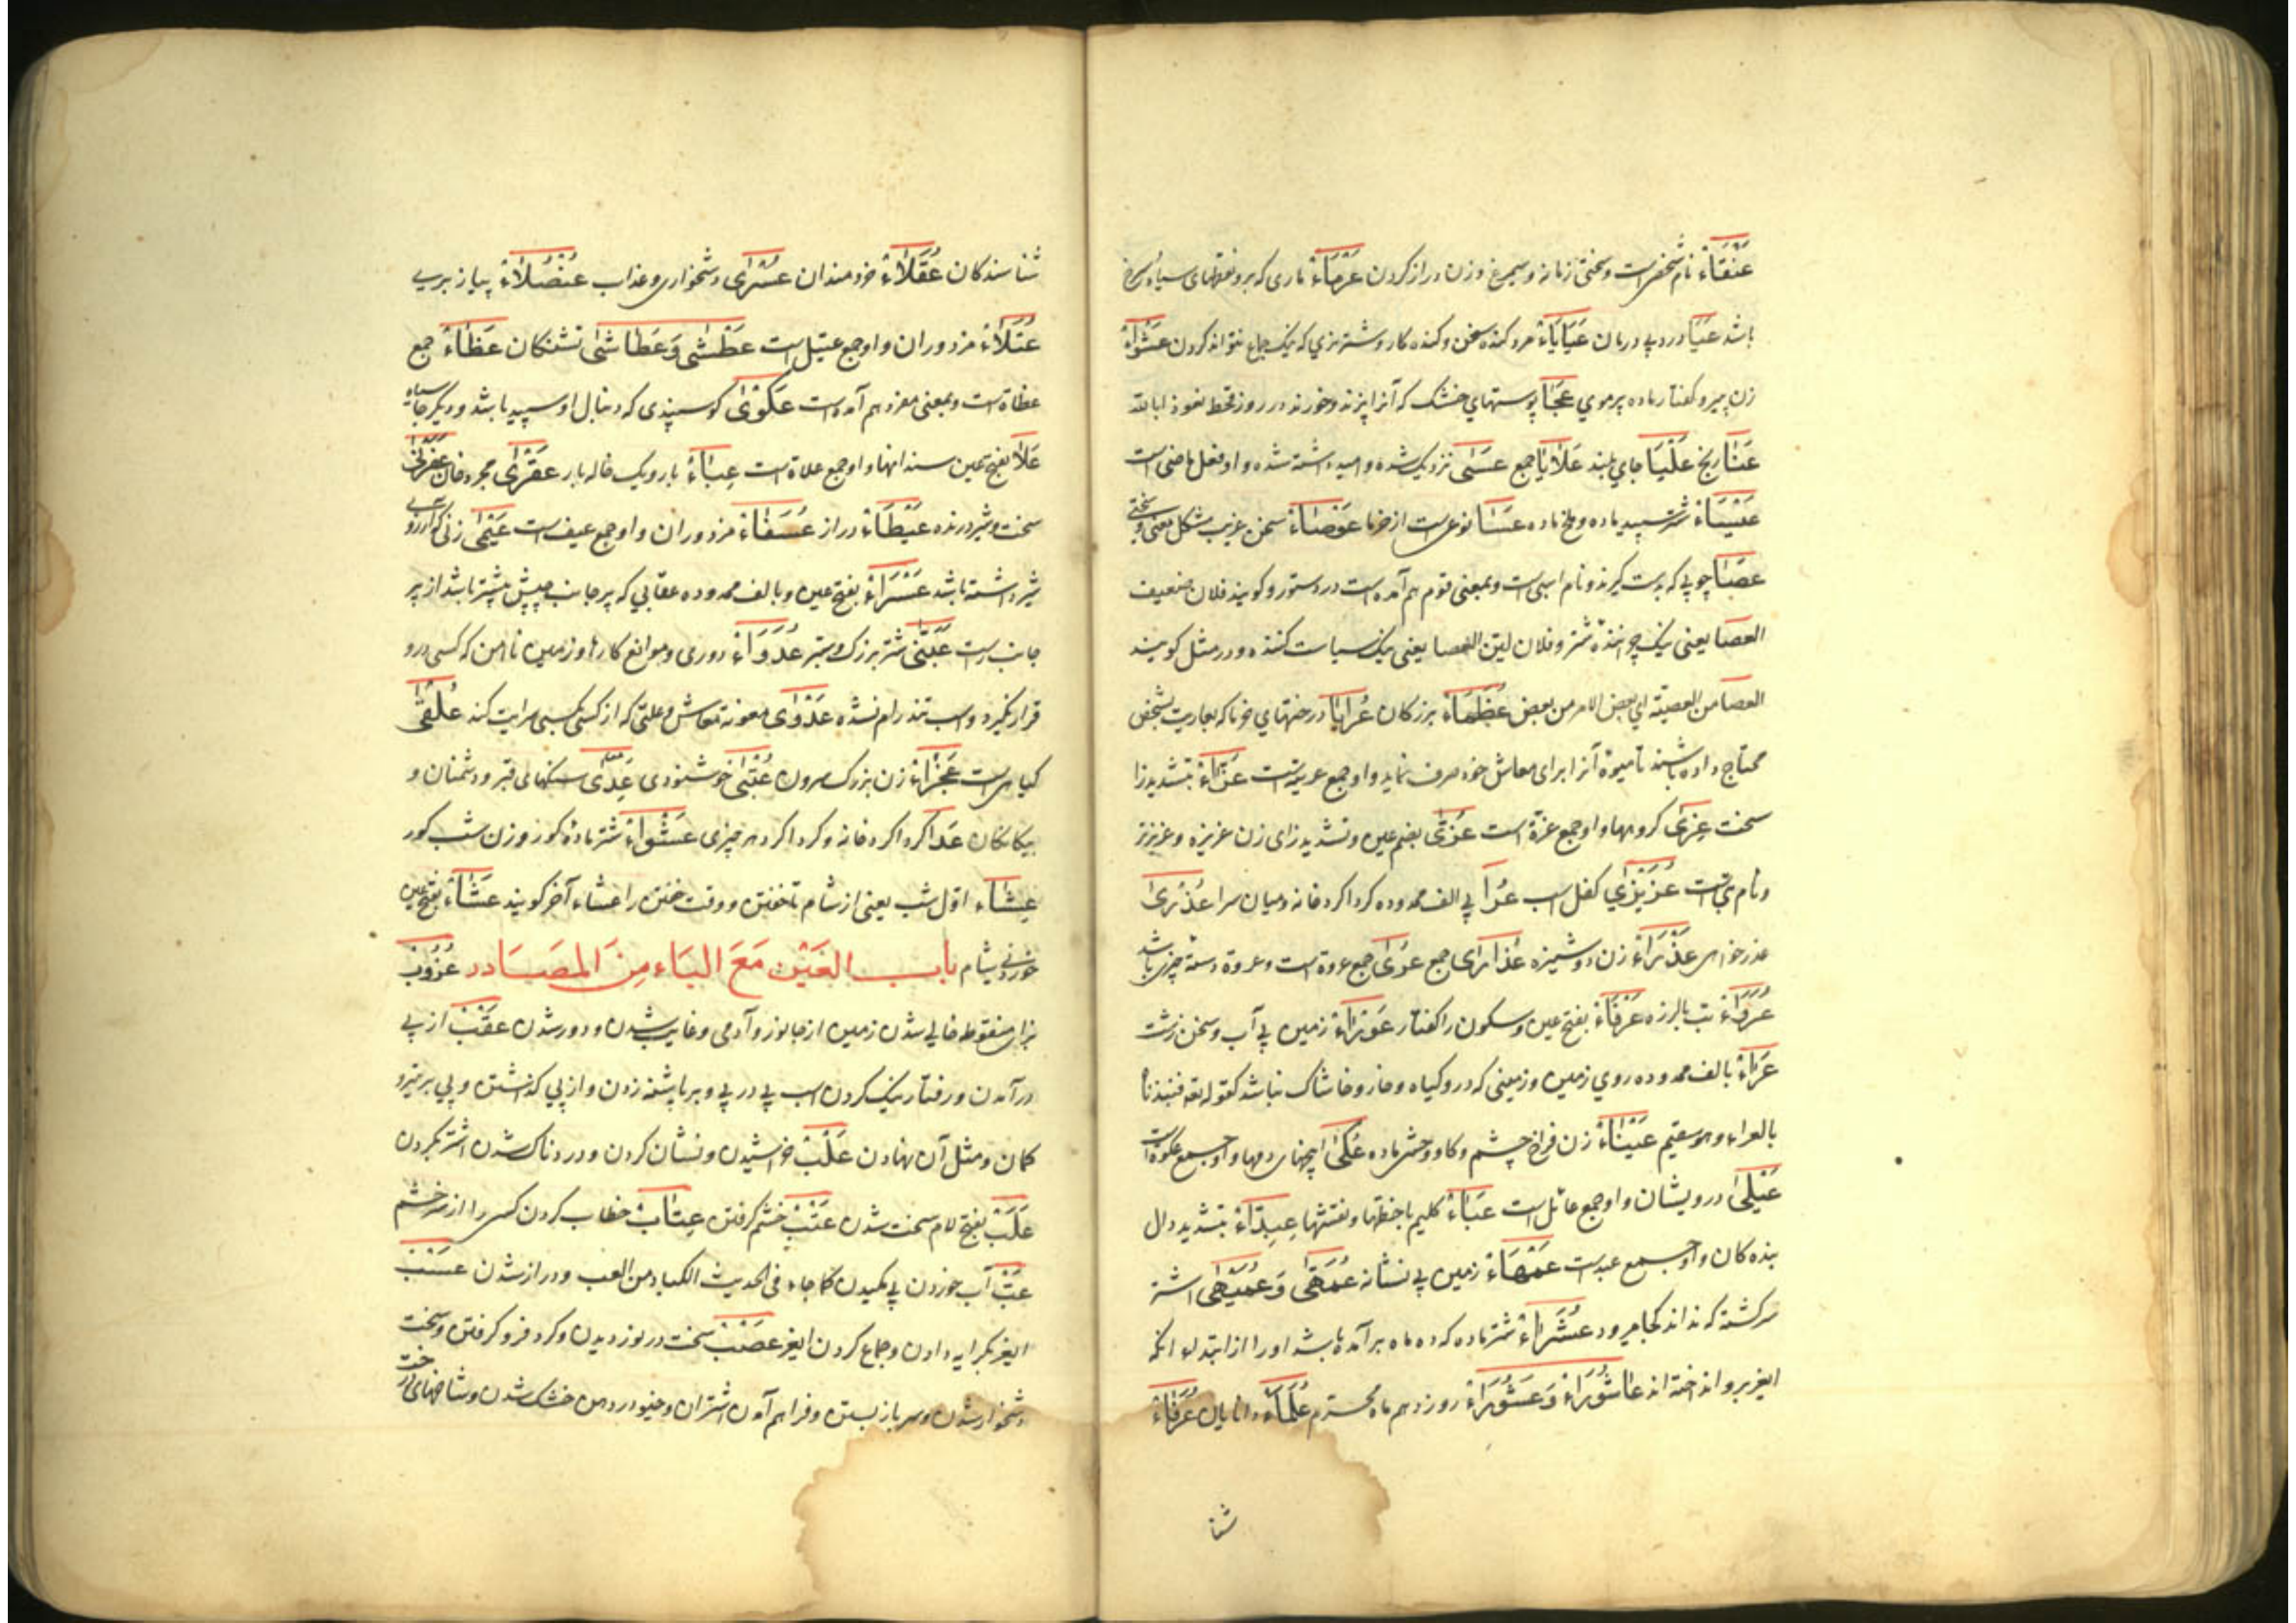 عَنْقَاءُ نام شخصیست و سختی زمانه و سیمرغ و زن دراز کردن عَرْمَاءُ ماری که برو نقطهای سیاه و سرخ
باشد عَیَا درد بی درمان عَیَایَاءُ مرد کنده سخن و کنده کار و شتر نری که نیک جماع نتواند کردن عَشْوَاءُ
زن پیر و کفتار ماده پر موی عُجَا پوستهای خشک که آنرا پزند و خورند در روز قحط نعوذ بالله
عَنَا رنج عَلْیَا جای بلند عَلَایَا جمع عَسٰی نزدیک شده و امید داشته شده و او فعل ماضی است
عَیْسَاءُ شتر سپید ماده و ملخ ماده عَسَا نوعی است از خرما عَوْصَاءُ سخن غریب مشکل معنی و سختی
عَصَا چوبی که بدست گیرند و نام اسبی است و بمعنی قوم هم آمده است در دستور و کویند فلان ضعیف
العصا یعنی نیک چراننده شتر و فلان لین العصا یعنی نیک سیاست کننده و در مثل کویند
العصا من العصیة ای بعض الامر من بعض عُظَمَاءُ بزرکان عَرَایَا درختهای خرما که بعاریت بشخص
محتاج داده باشند تا میوهٔ آنرا برای معاش خود صرف نماید و او جمع عریة است عَزَّاءُ بتشدید زا
سخت عِزٰی کروهها و او جمع عزة است عُزّٰی بضم عین و تشدید زای زن عزیزه و عزیزتر
و نام بتی است عُزَیْزٰی کفل اسب عَرَا بی الف ممدوده کرداکرد خانه و میان سرا عُذْرٰی
عذر خواهی عَذْرَاءُ زن دوشیزه عَذَارٰی جمع عُرٰی جمع عروة است و عروة دسته چیزی باشد
عُرَوَاءُ تب با لرزه عَرْفَاءُ بفتح عین و سکون را کفتار عَوْرَاءُ زمین بی آب و سخن زشت
عَرَاءُ بالف ممدوده روی زمین و زمینی که درو کیاه و خار و خاشاک نباشد کقوله تعه فنبذناه
بالعراء و هو سقیم عَیْنَاءُ زن فراخ چشم و کاو وحشی ماده عُکٰی پیچهای دمها و او جمع عکوة است
عَیْلٰی درویشان و او جمع عائل است عَبَاءُ کلیم با خطها و نقشها عِبِدَّاءُ بتشدید دال
بندهکان و او جمع عبد است عَمْهَاءُ زمین بی نشانه عُمَّهٰی وَ عُمَّیْهٰی اشتر
سرکشته که نداند کجا میرود عُشَرَاءُ شتر ماده که ده ماه برآمده باشد او را از ابتداء آنکه
ایغر برو انداخته اند عَاشُوْرَاءُ وَ عَشُوْرَاءُ روز دهم ماه محرم عُلَمَاءُ دانایان عُرَفَاءُ
شنا
شناسندکان عُقَلَاءُ خردمندان عُسْرٰی دشخواری و عذاب عُنْصُلَاءُ پیاز بری
عُتَلَاءُ مزدوران و او جمع عتیل است عَطْشٰی وَ عَطَاشٰی تشنکان عَظَاءُ جمع
عظاة است و بمعنی مفرد هم آمده است عَکْوٰی کوسپندی که دنبال او سپید باشد و دیکر جا سیاه
عَلَا بفتح عین سندانها و او جمع علاة است عِبَاءُ بار و یک خاله بار عَقْرٰی مجروحان عَفَرْنٰی
سخت و شیر درنده عَیْطَاءُ دراز عُسَفَاءُ مزدوران و او جمع عسیف است عَیْمٰی زنی که آرزوی
شیر داشته باشد عَسْرَاءُ بفتح عین و بالف ممدوده عقابی که پر جانب چپش بیشتر باشد از پر
جانب راست عَبَنّٰی شتر بزرک و ستبر عُدَوَاءُ دوری و موانع کارها و زمین ناامن که کسی درو
قرار نکیرد و اسب تند رام نشده عَدْوٰی معونة معاش و علتی که از کسی بکسی سرایت کند عَلْقٰی
کیاهی است عَجْزَاءُ زن بزرک سرون عُتْبٰی خوشنودی عِدٰی سنکهای قبر و دشمنان و
بیکانکان عَدَا کرداکرد خانه و کرداکرد هر چیزی عَشْوَاءُ شتر مادهٔ کور و زن شب کور
عِشَاءُ اول شب یعنی از شام تا خفتن و وقت خفتن را عشاء آخر کویند عَشَاءُ بفتح عین
خوردنی شام باب العَیْن مَعَ البَاء مِنَ المَصَادر عُزُوْبٌ
بزای منقوطه خالی شدن زمین از جانور و آدمی و غایب شدن و دور شدن عَقْبٌ از پی
درآمدن و رفتار نیک کردن اسب پی در پی و بر پاشنه زدن و از پی کذشتن و پی بر تیر و
کمان و مثل آن نهادن عَلْبٌ خراشیدن و نشان کردن و دردناک شدن اشتر بکردن
عَلَبٌ بفتح لام سخت شدن عَتْبٌ خشم کرفتن عِتَابٌ خطاب کردن کسی را از سر خشم
عَبٌّ آب خوردن بی مکیدن کما جاء فی الحدیث الکباد من العب و دراز شدن عَسْبٌ
ایغر بکرایه دادن و جماع کردن ایغر عَصْبٌ سخت در نوردیدن و کرد فرو کرفتن و سخت
دشخوار شدن و سر باز بستن و فراهم آمدن اشتران و خیو در دهن خشک شدن و شاخهای درخت